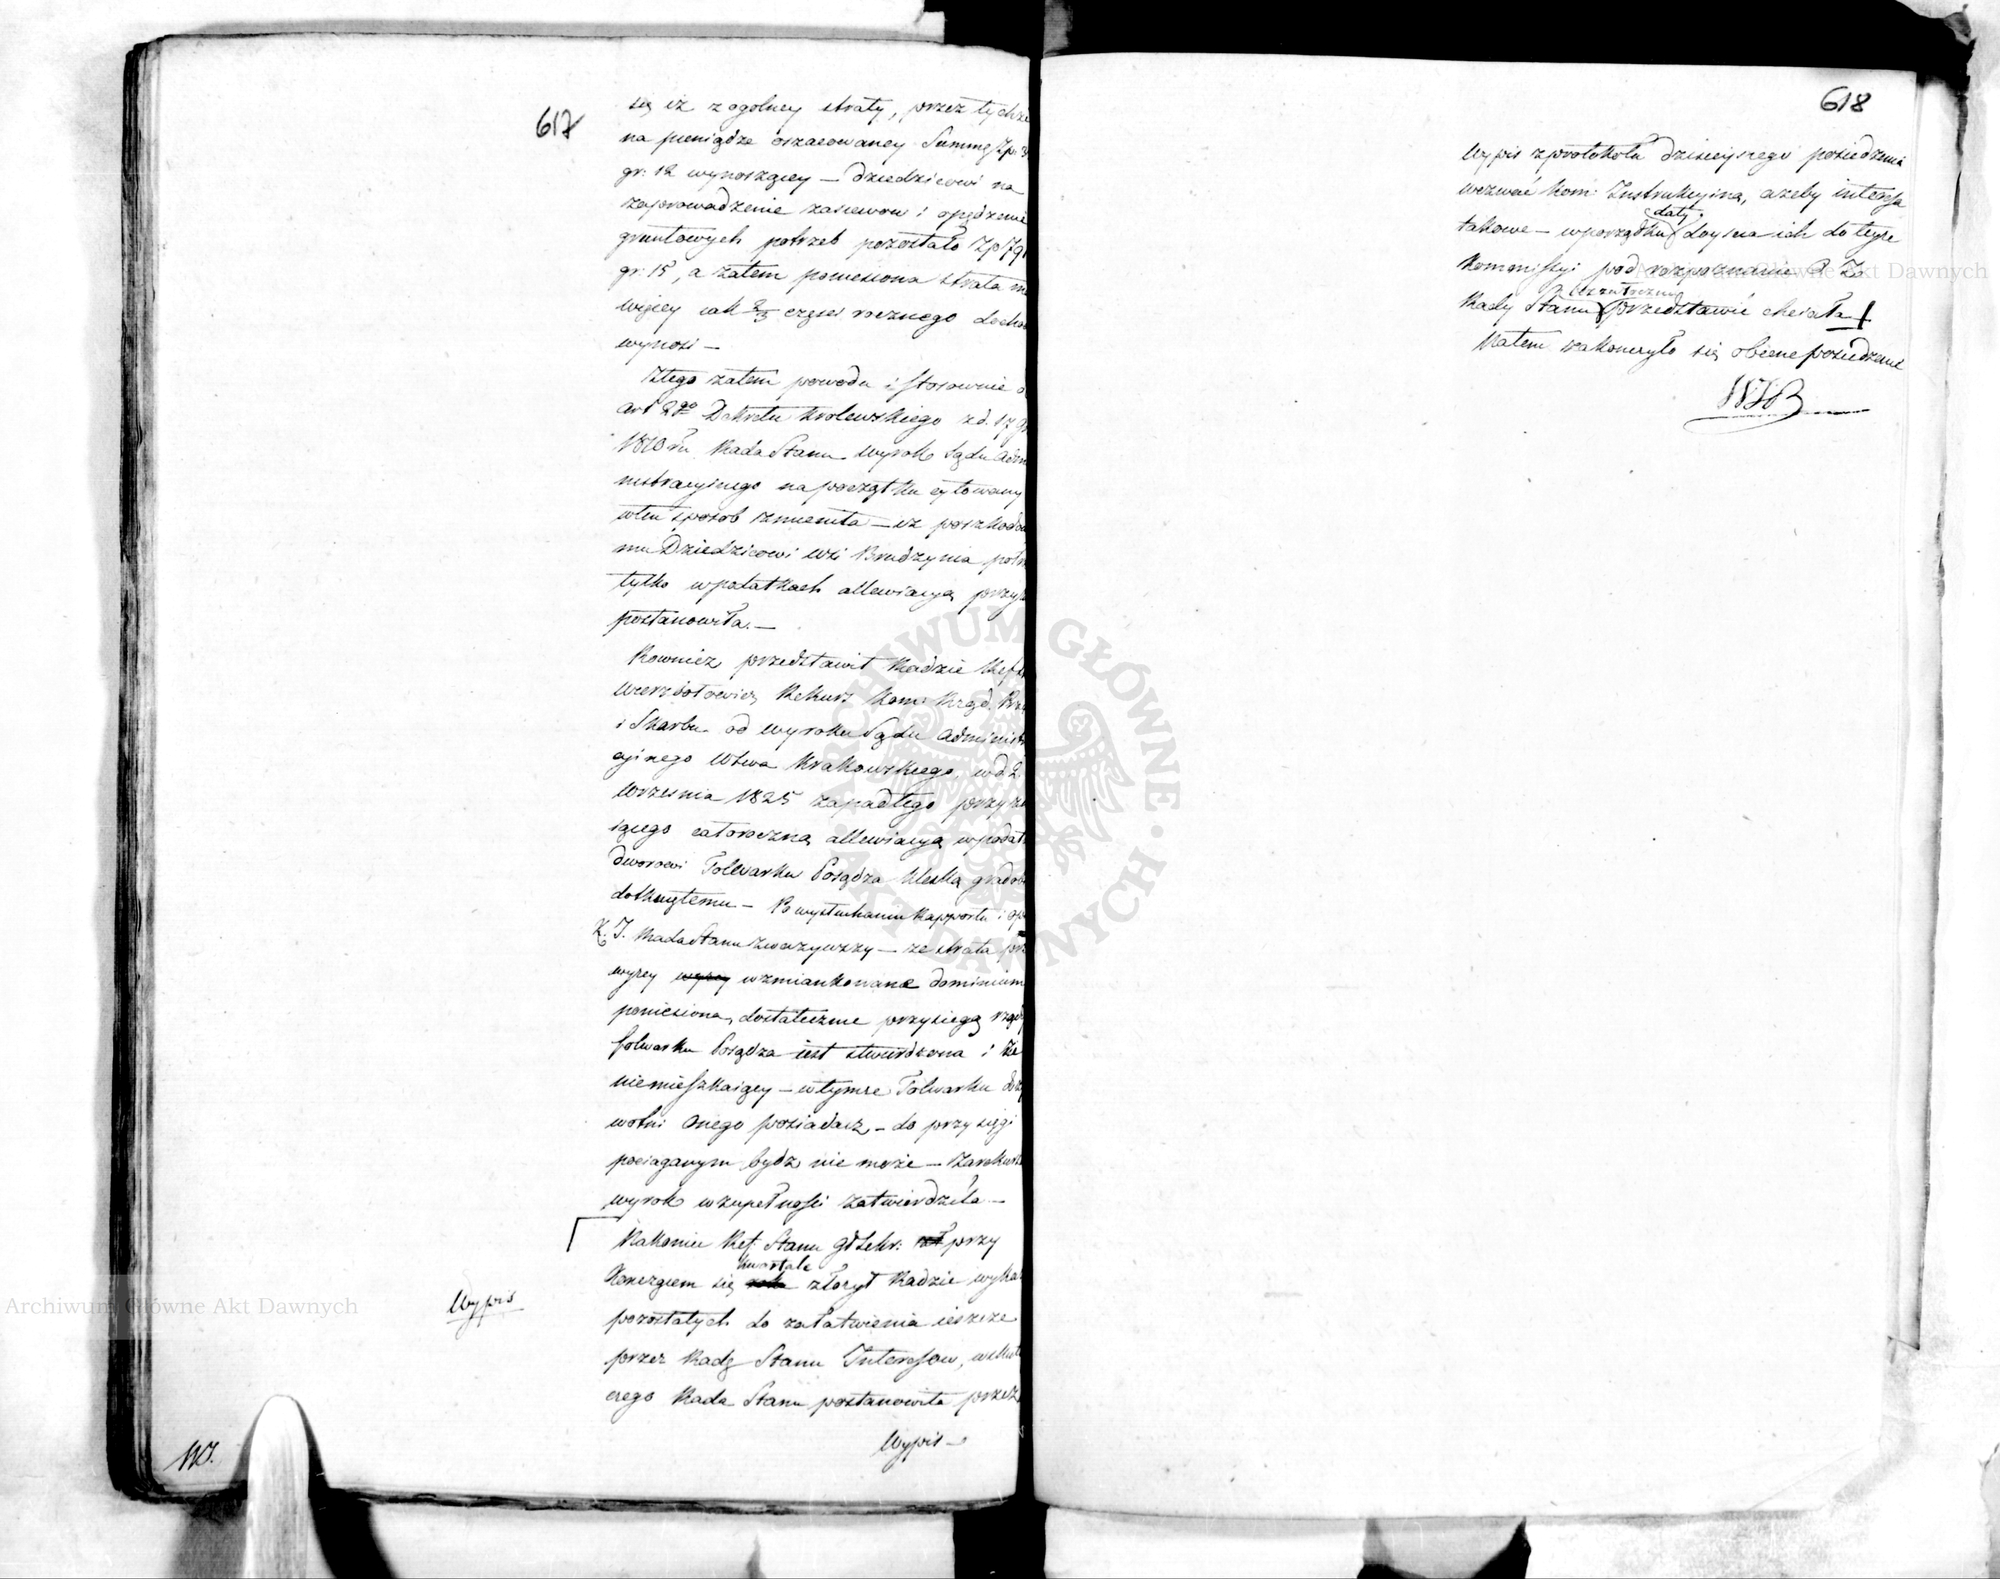 617
się iż z ogolney straty, przez tychże
na pieniądze oszacowaney Summę Zp. 3
gr: 12 wynoszącey — Dziedzicowi na
zaprowadzenie zasiewow i opędzenie
gruntowych potrzeb pozostało Zp 79
gr: 15, a zatem poniesiona strata nie
więcey iak 2/3 części rocznego docho
wynosi —
Ztego zatem powodu i stosownie
art 2go Dekretu Krolewskiego z d. 17
1810 ru Rada Stanu wyrok Sądu Admi
nistracyinego na początku cytowany
wten sposob zmieniła — iż poszkodo
mu Dziedzicowi wsi Brudzynia
tylko w podatkach allewiacyą
postanowiła. —
Rownież przedstawił Radzie Ref.
Wierzbołowicz Rekurs Kom: Rząd. Prz
i Skarbu od wyroku Sądu Administr
cyinego Wtwa Krakowskiego, w d 2
Września 1825 zapadłego przyzn
iącego całoroczną allewiacyą w podat
dworowi Folwarku Posądza klęską grado
dotkniętemu — Po wysłuchaniu Rapportu i op
Z. J. Rada Stanu zważywszy — że strata prz
wyżey wyżey wzmiankowane dominium
poniesiona, dostatecznie przysięgą rząd
folwarku Posądza iest stwierdzona i że
niemieszkaiący — w tymże Folwarku
onego posiadacz — do przysięgi
pociąganym bydz nie może —
wyrok w zupełności zatwierdziła —
Nakoniec Ref. Stanu przy
kwartale
się złożył Radzie wykaz
pozostałych do załatwienia ieszcze
przez Radę Stanu Interessow, wskut
czego Rada Stanu postanowiła przez
Wypis —
Wypis
618
Wypis z protokołu dzisieyszego posiedzenia
wezwać Kom: Instrukcyiną, ażeby interssa
daty
takowe — w porządku doyscia ich do teyże
Kommissyi pod rozpoznanie O. Z.
Rady Stanu przedstawić chciała
Natem zakończyło się obecne posiedzenie
Archiwum Główne Akt Dawnych
Archiwum Główne Akt Dawnych
ARCHIWUM GŁÓWNE AKT DAWNYCH